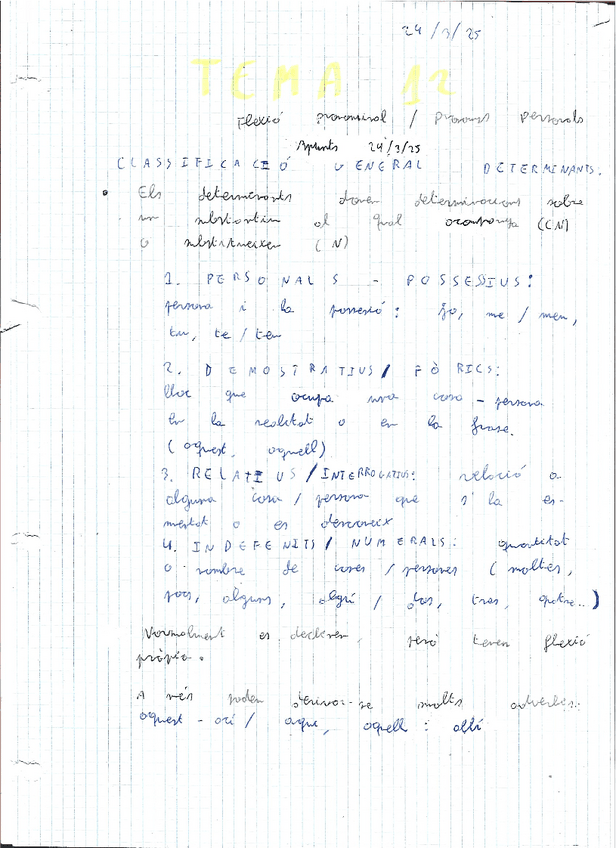 24/3/25
TEMA 12
Flexió pronominal / pronoms personals
Apunts 24/3/25
CLASSIFICACIÓ GENERAL DETERMINANTS.
• Els determinants donen determinacions sobre
un substantiu al qual acompanya (CN)
o substitueixen (N)
1. PERSONALS - POSSESSIUS:
persona i la possessió: jo, me / meu,
tu, te / teu
2. DEMOSTRATIUS / FÒRICS:
lloc que ocupa una cosa - persona
en la realitat o en la frase.
(aquest, aquell)
3. RELATIUS / INTERROGATIUS: relació a
alguna cosa / persona que s'la es-
mentat o es desconeix
4. INDEFENITS / NUMERALS: quantitat
o nombre de coses / persones (moltes,
pocs, alguns, algú / dos, tres, quatre..)
Normalment es declinen, però tenen flexió
pròpia.
A més poden derivar-se molts adverbis:
aquest - ací / aque, aquell : allí